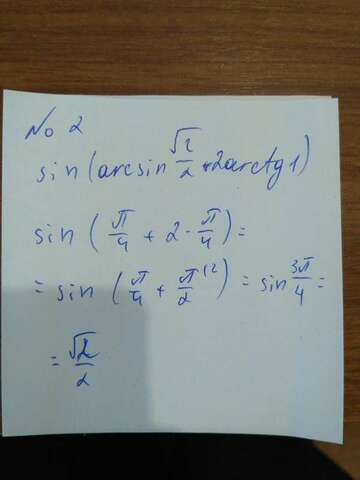 № 2
sin(arcsin √2/2 + 2arctg1)
sin (π/4 + 2·π/4) =
= sin (π/4 + π/2 ⁽²) = sin 3π/4 =
= √2/2